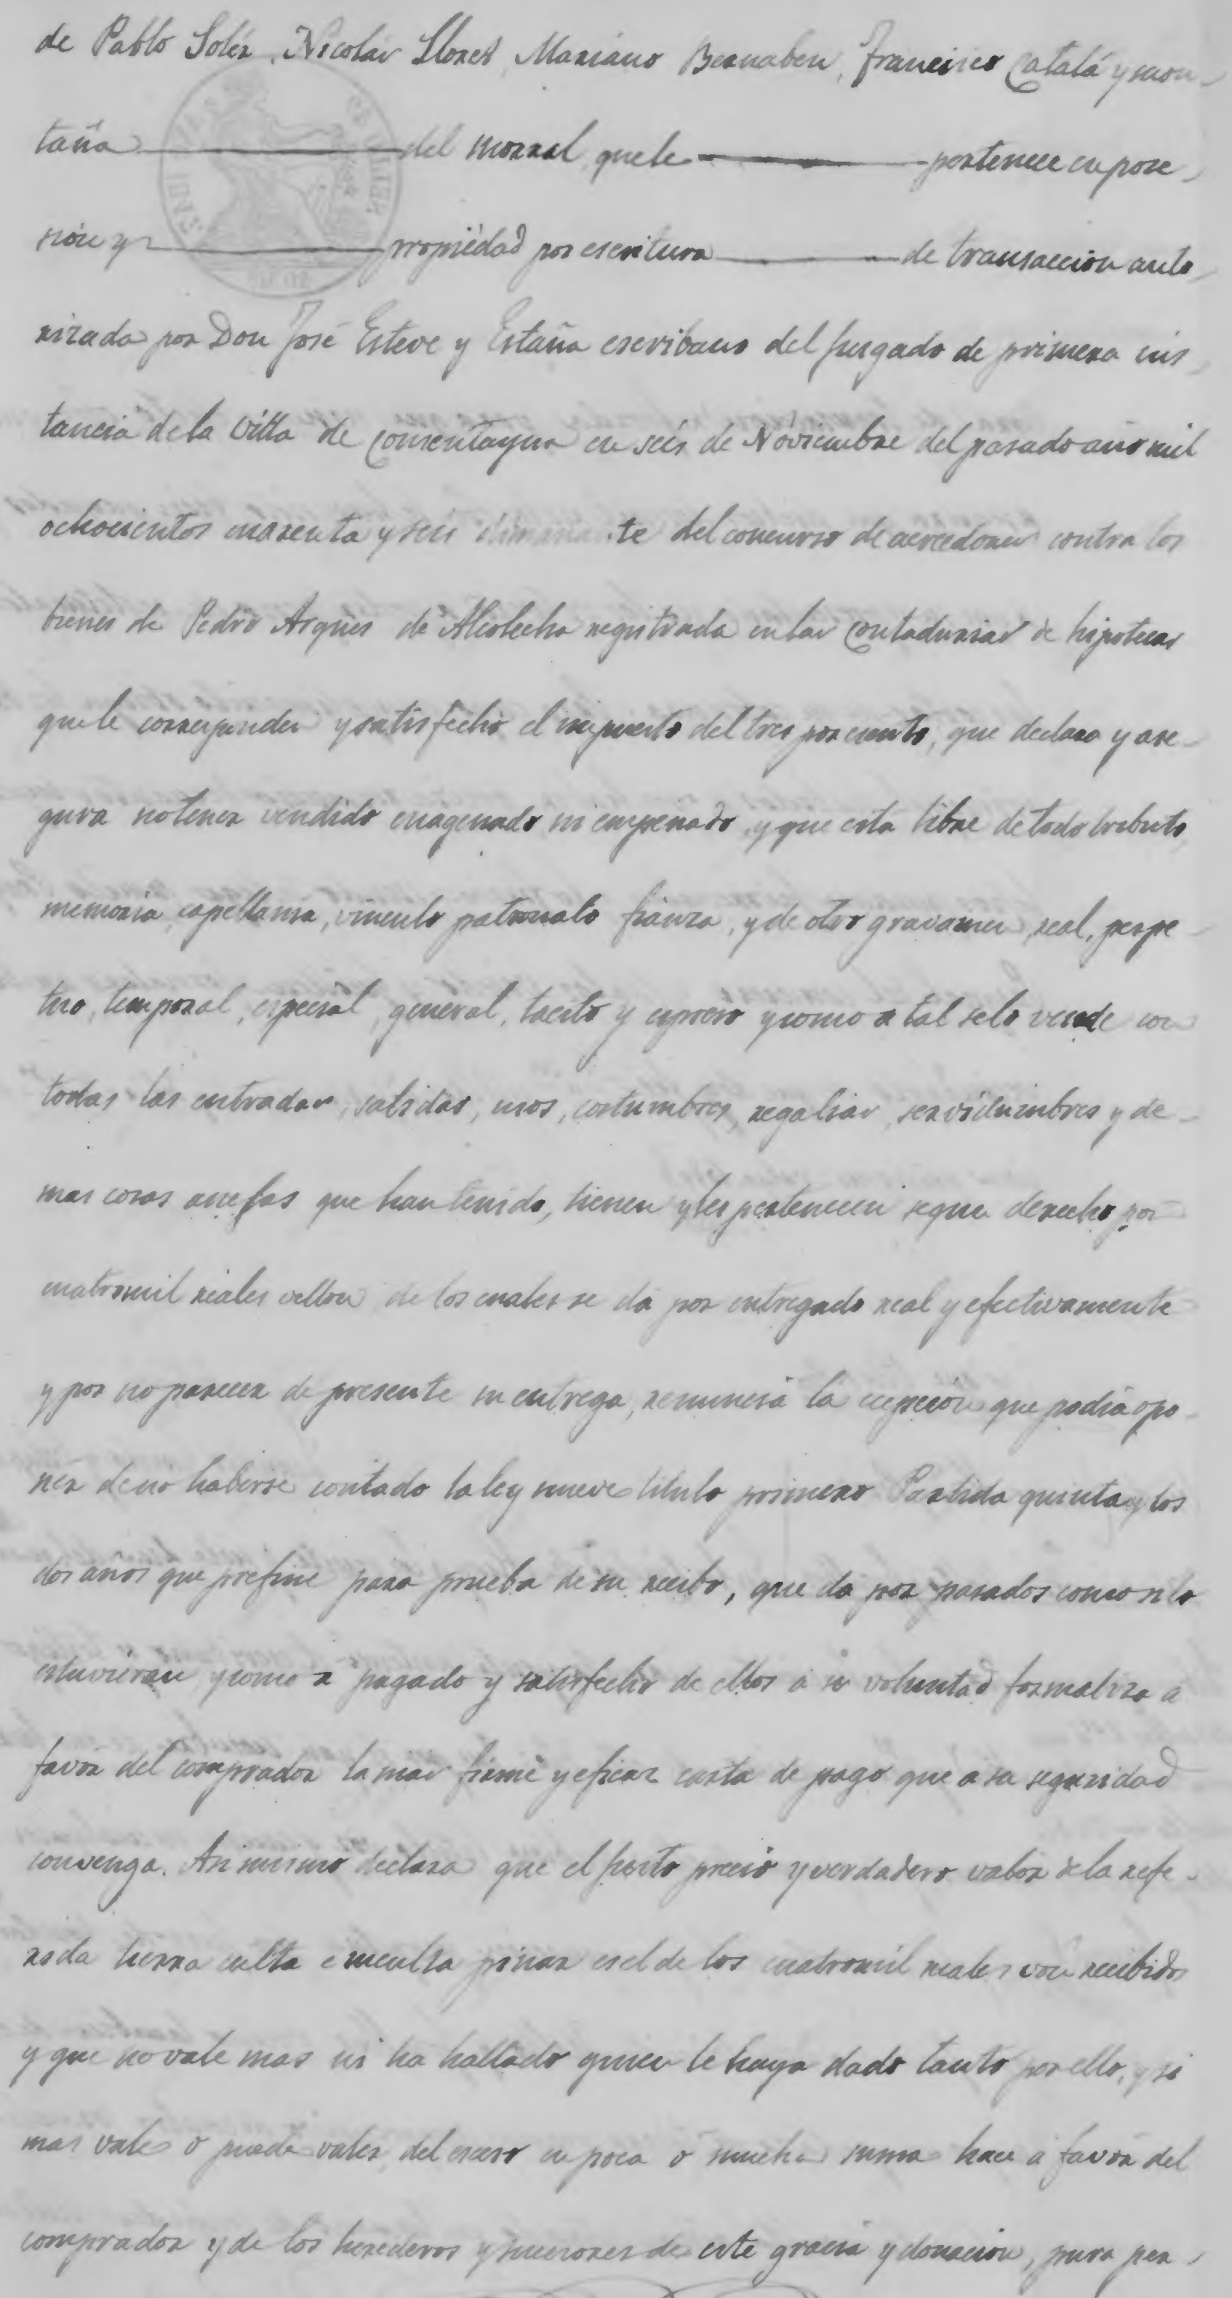 de Pablo Solér, Nicolas Lloret, Mariano Bernabeu, Francisco Catalá y mon-
taña del morral, que le pertenece en pose-
sion y propiedad por escritura de transaccion auto-
rizada por Don José Esteve y Estaña escribano del Jusgado de primera ins-
tancia de la Villa de Consentayna en seis de Noviembre del pasado año mil
ochocientos cuarenta y seis dimanante del concurso de acreedores contra los
bienes de Pedro Arques de Alcolecha registrada en las contadurias de hipotecas
que le corresponden y satisfecho el impuesto del tres por ciento, que declara y ase-
gura no tener vendido enagenado ni empeñado, y que esta libre de todo tributo,
memoria, capellania, vinculo patronato fianza, y de otro gravamen, real, perpe-
tuo, temporal, especial, general, tacito y espreso y como a tal se lo vende con
todas las entradas, salidas, usos, costumbres, regalias, servidumbres y de-
mas cosas anejas que han tenido, tienen y les pertenecen segun derecho por
cuatromil reales vellon de los cuales se da por entregado real y efectivamente
y por no parecer de presente su entrega, renuncia la ecepción que podia opo-
ner de no haberse contado la ley nueve titulo primero Partida quinta y los
dos años que prefine para prueba de su recibo, que da por pasados como si lo
estuvieran y como a pagado y satisfecho de ellos á su voluntad formaliza a
favor del comprador la mas firme y eficaz carta de pago que a su seguridad
convenga. Asimismo declara que el justo precio y verdadero valor de la refe-
rida tierra culta e inculta pinar es el de los cuatromil reales von recibidos
y que no vale mas ni ha hallado quien le haya dado tanto por ello, y si
mas vale o puede valer, del eceso en poca ó mucha suma hace á favor del
comprador y de los herederos y sucesores de este gracia y donacion, pura per-